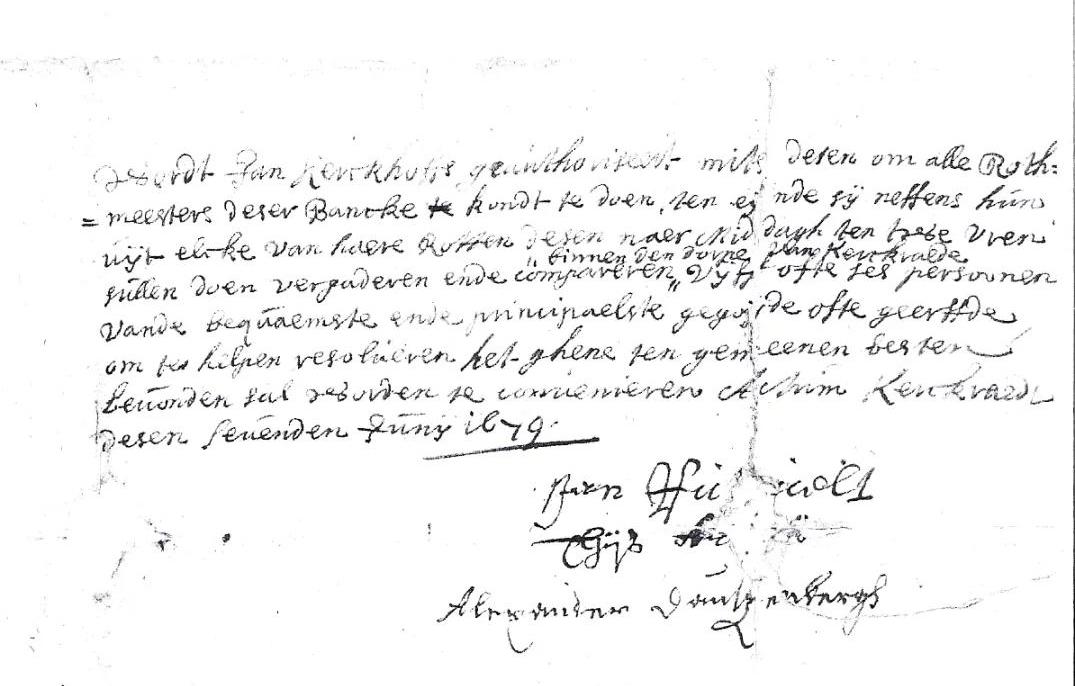 Wordt Jan Kerckhoffs geauthoriseert mits desen om alle Roth=
=meesters deser Bancke te kondt te doen, ten eijnde sij neffens hun
uijt elcke van haere Rotten desen naer Middagh ten twee Vren
"binnen den dorpe van Kerckraede
sullen doen vergaderen ende compareren "vijff ofte ses persoonen
vande bequaemste ende principaelste gegoijde ofte geerffde
om te helpen resolueren het ghene ten gemeenen besten
beuonden sal worden te conuenieren Actum Kerckraede
desen seuenden Junij 1679.
Jan
Thijs
Alexander Dautzenbergh